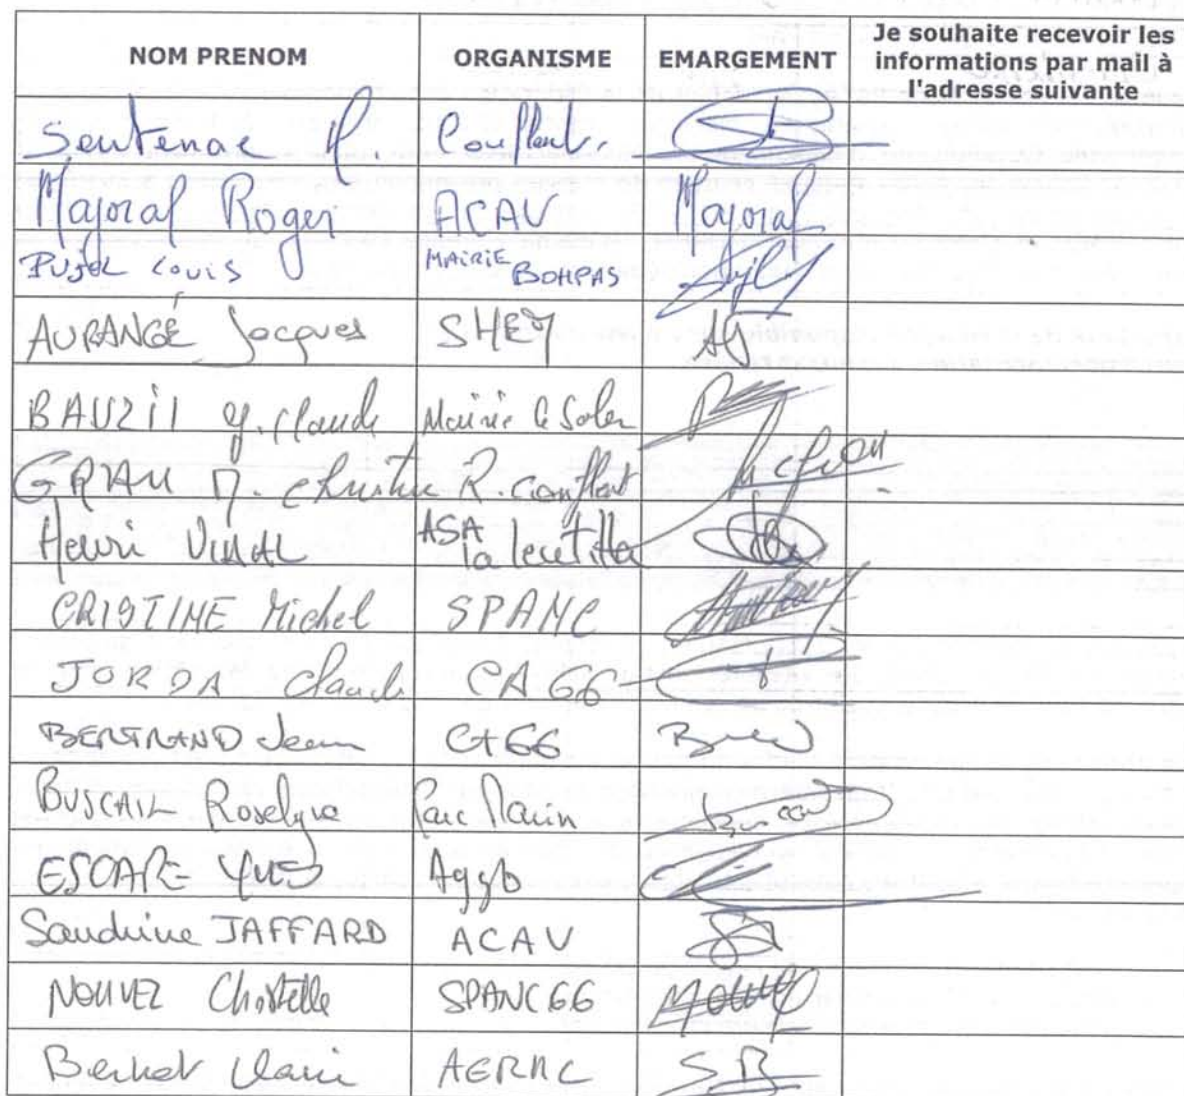 NOM PRENOM ORGANISME EMARGEMENT Je souhaite recevoir les informations par mail à l'adresse suivante
Sentenac M. Conflent.
Majoral Roger ACAV Majoral
PUJOL LOUIS MAIRIE BOMPAS
AURANGÉ Jacques SHEM AJ
BAUZIL J. Claude Mairie le Soler
GRAU M. Christine R. Conflent
Henri VIDAL ASA la
CRISTINE Michel SPANC
JORDA Claude CA 66
BERTRAND Jean CA 66
BUSCAIL Roselyne Parc Marin
ESCAPE YVES Agglo
Sandrine JAFFARD ACAV
NOUVEL Christelle SPANC66
AERMC SB